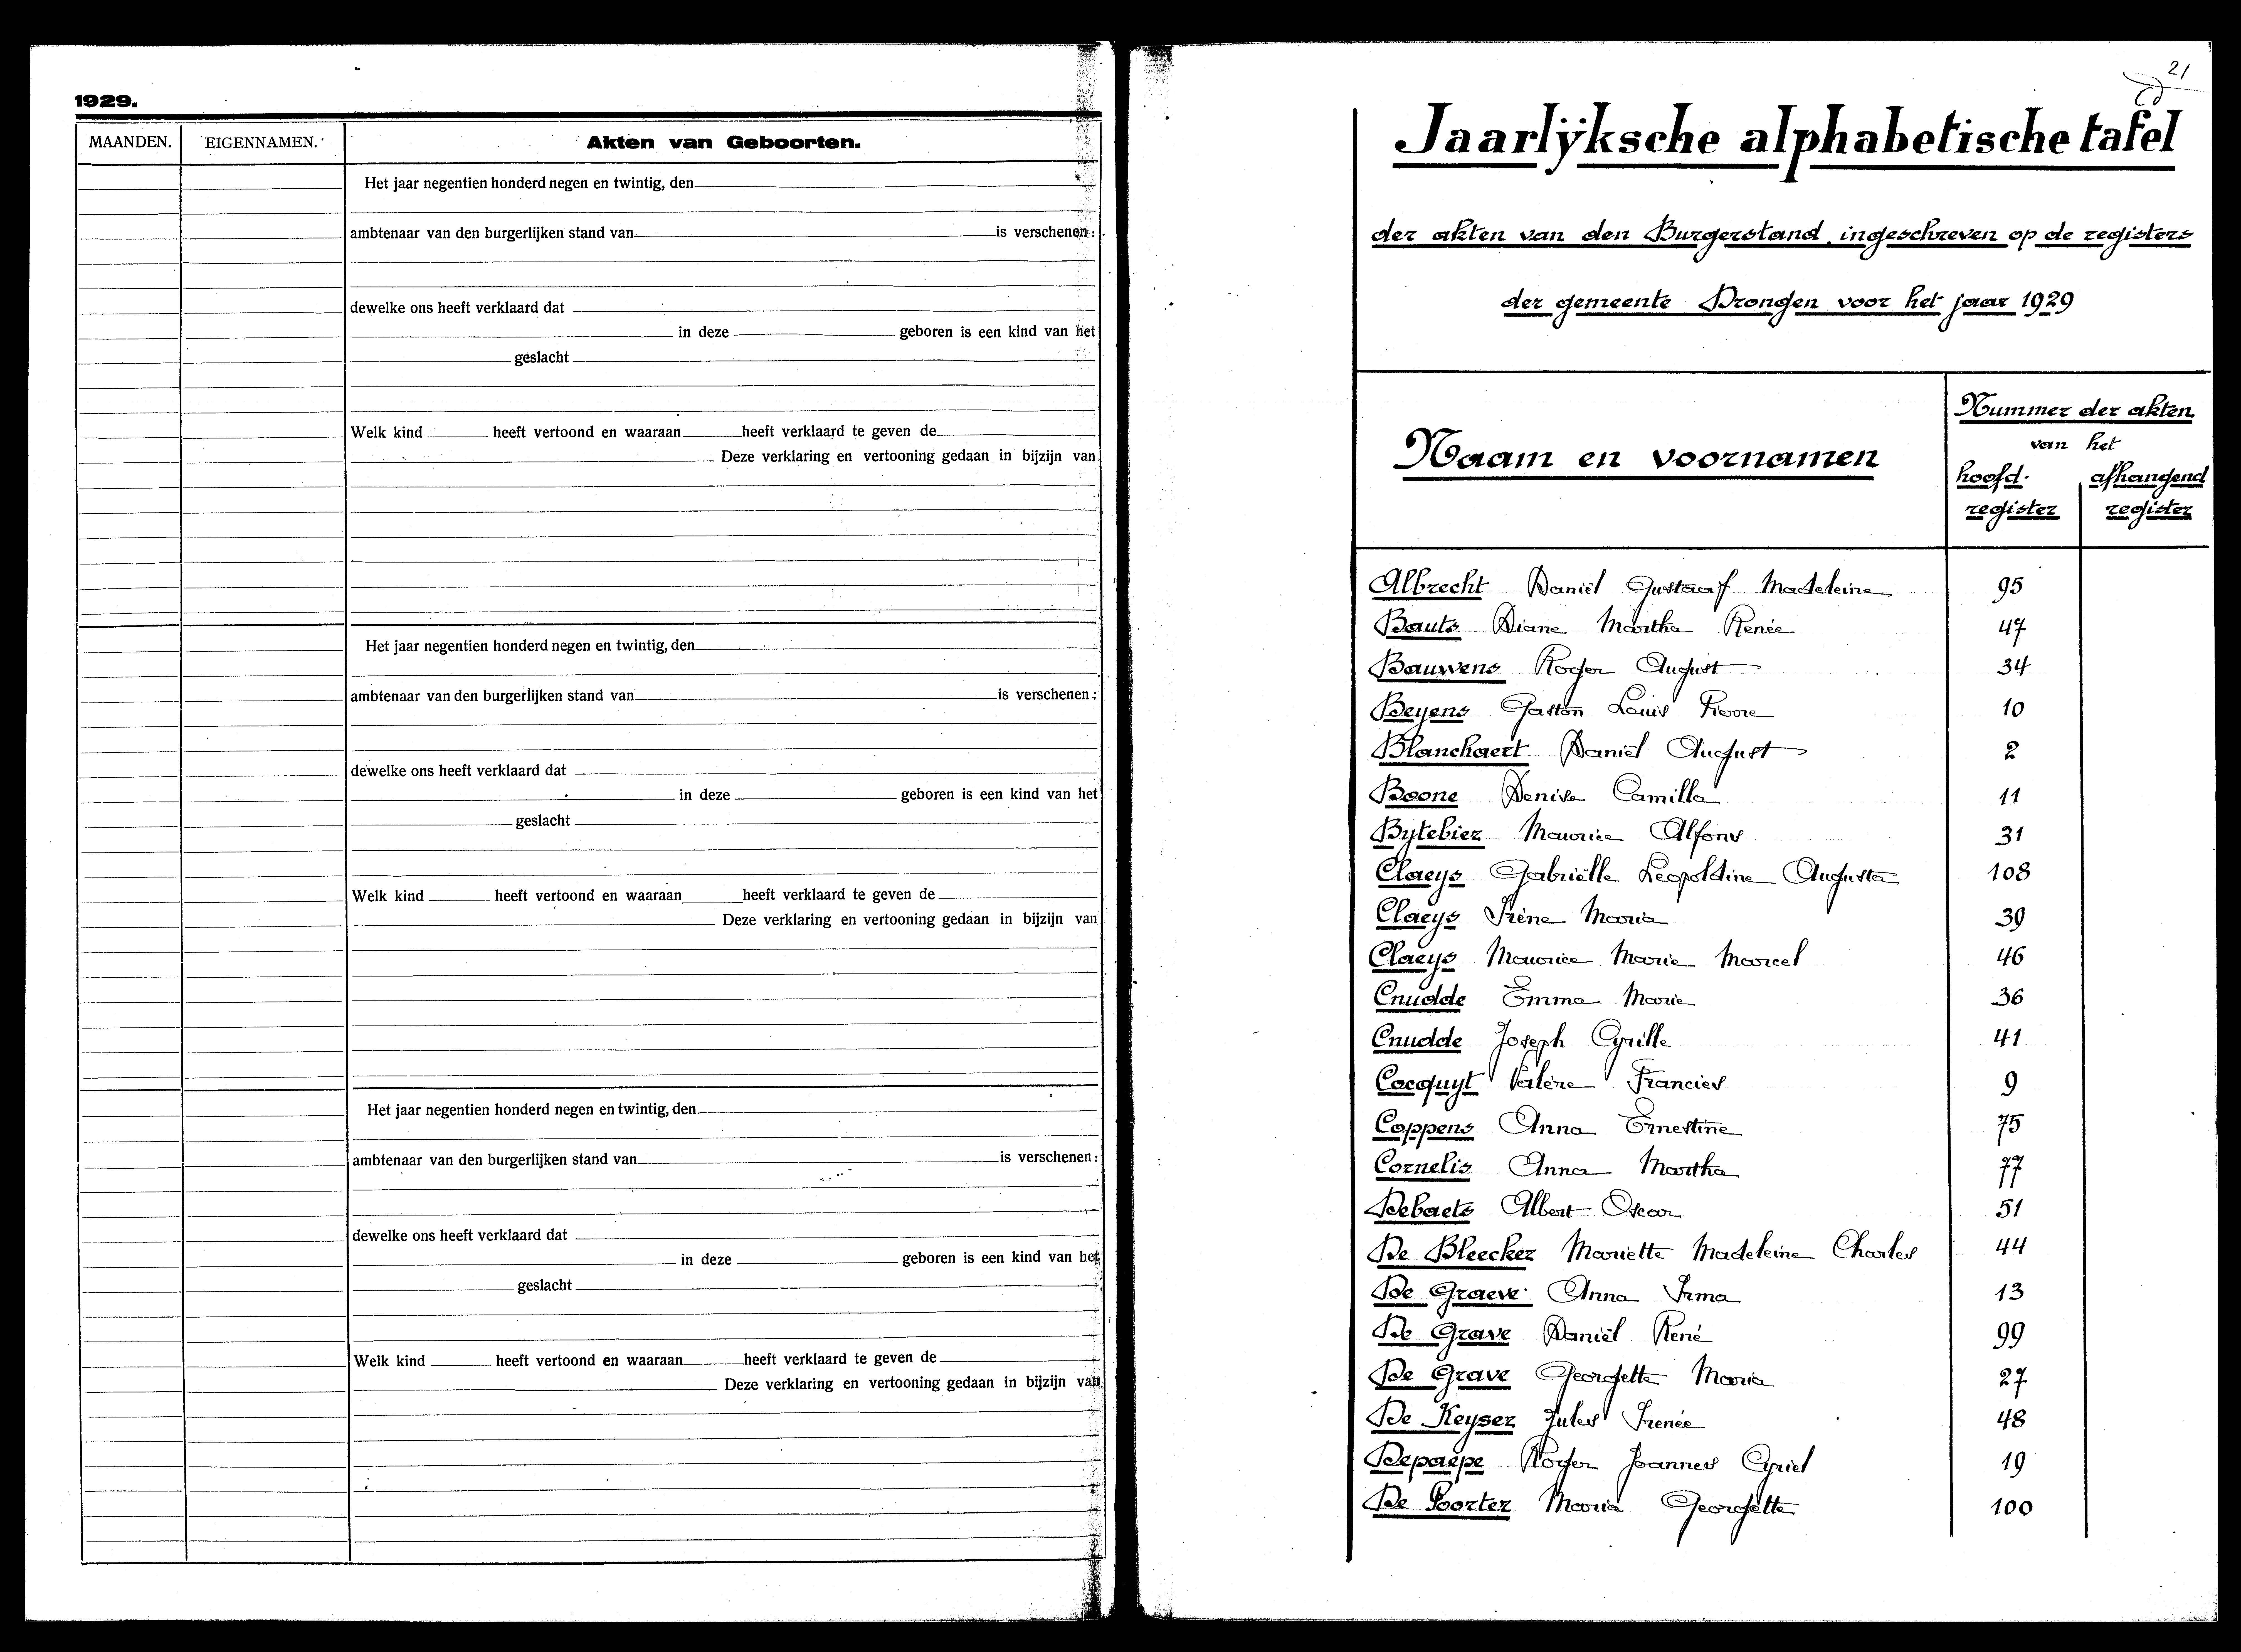 1929.
MAANDEN. EIGENNAMEN. Akten van Geboorten.
Het jaar negentien honderd negen en twintig, den
ambtenaar van den burgerlijken stand van is verschenen:
dewelke ons heeft verklaard dat
in deze geboren is een kind van het
geslacht
Welk kind heeft vertoond en waaraan heeft verklaard te geven de
Deze verklaring en vertooning gedaan in bijzijn van
Het jaar negentien honderd negen en twintig, den
ambtenaar van den burgerlijken stand van is verschenen:
dewelke ons heeft verklaard dat
in deze geboren is een kind van het
geslacht
Welk kind heeft vertoond en waaraan heeft verklaard te geven de
Deze verklaring en vertooning gedaan in bijzijn van
Het jaar negentien honderd negen en twintig, den
ambtenaar van den burgerlijken stand van is verschenen:
dewelke ons heeft verklaard dat
in deze geboren is een kind van het
geslacht
Welk kind heeft vertoond en waaraan heeft verklaard te geven de
Deze verklaring en vertooning gedaan in bijzijn van
21
Jaarlÿksche alphabetische tafel
der akten van den Burgerstand, ingeschreven op de registers
der gemeente Drongen voor het jaar 1929
Naam en voornamen
Nummer der akten
van het
hoofd- afhangend
register register
Albrecht Daniël Gustaaf Madeleine 95
Bauts Diane Martha Renée 47
Bauwens Roger August 34
Beyens Gaston Louis Pierre 10
Blanchaert Daniël August 2
Boone Denise Camilla 11
Bytebier Maurice Alfons 31
Claeys Gabriëlle Leopoldine Augusta 108
Claeys Irène Maria 39
Claeys Maurice Marie Marcel 46
Cnudde Emma Marie 36
Cnudde Joseph Cyrille 41
Cocquyt Valère Francies 9
Coppens Anna Ernestine 75
Cornelis Anna Martha 77
Debaets Albert Oscar 51
De Bleecker Mariette Madeleine Charles 44
De Graeve Anna Irma 13
De Grave Daniël René 99
De Grave Georgette Maria 27
De Keyser Jules Irenée 48
Depaepe Roger Joannes Cyriel 19
De Poorter Maria Georgette 100